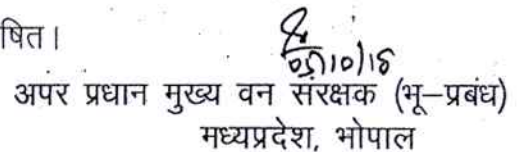 षित।
05/10/18
अपर प्रधान मुख्य वन संरक्षक (भू–प्रबंध)
मध्यप्रदेश, भोपाल